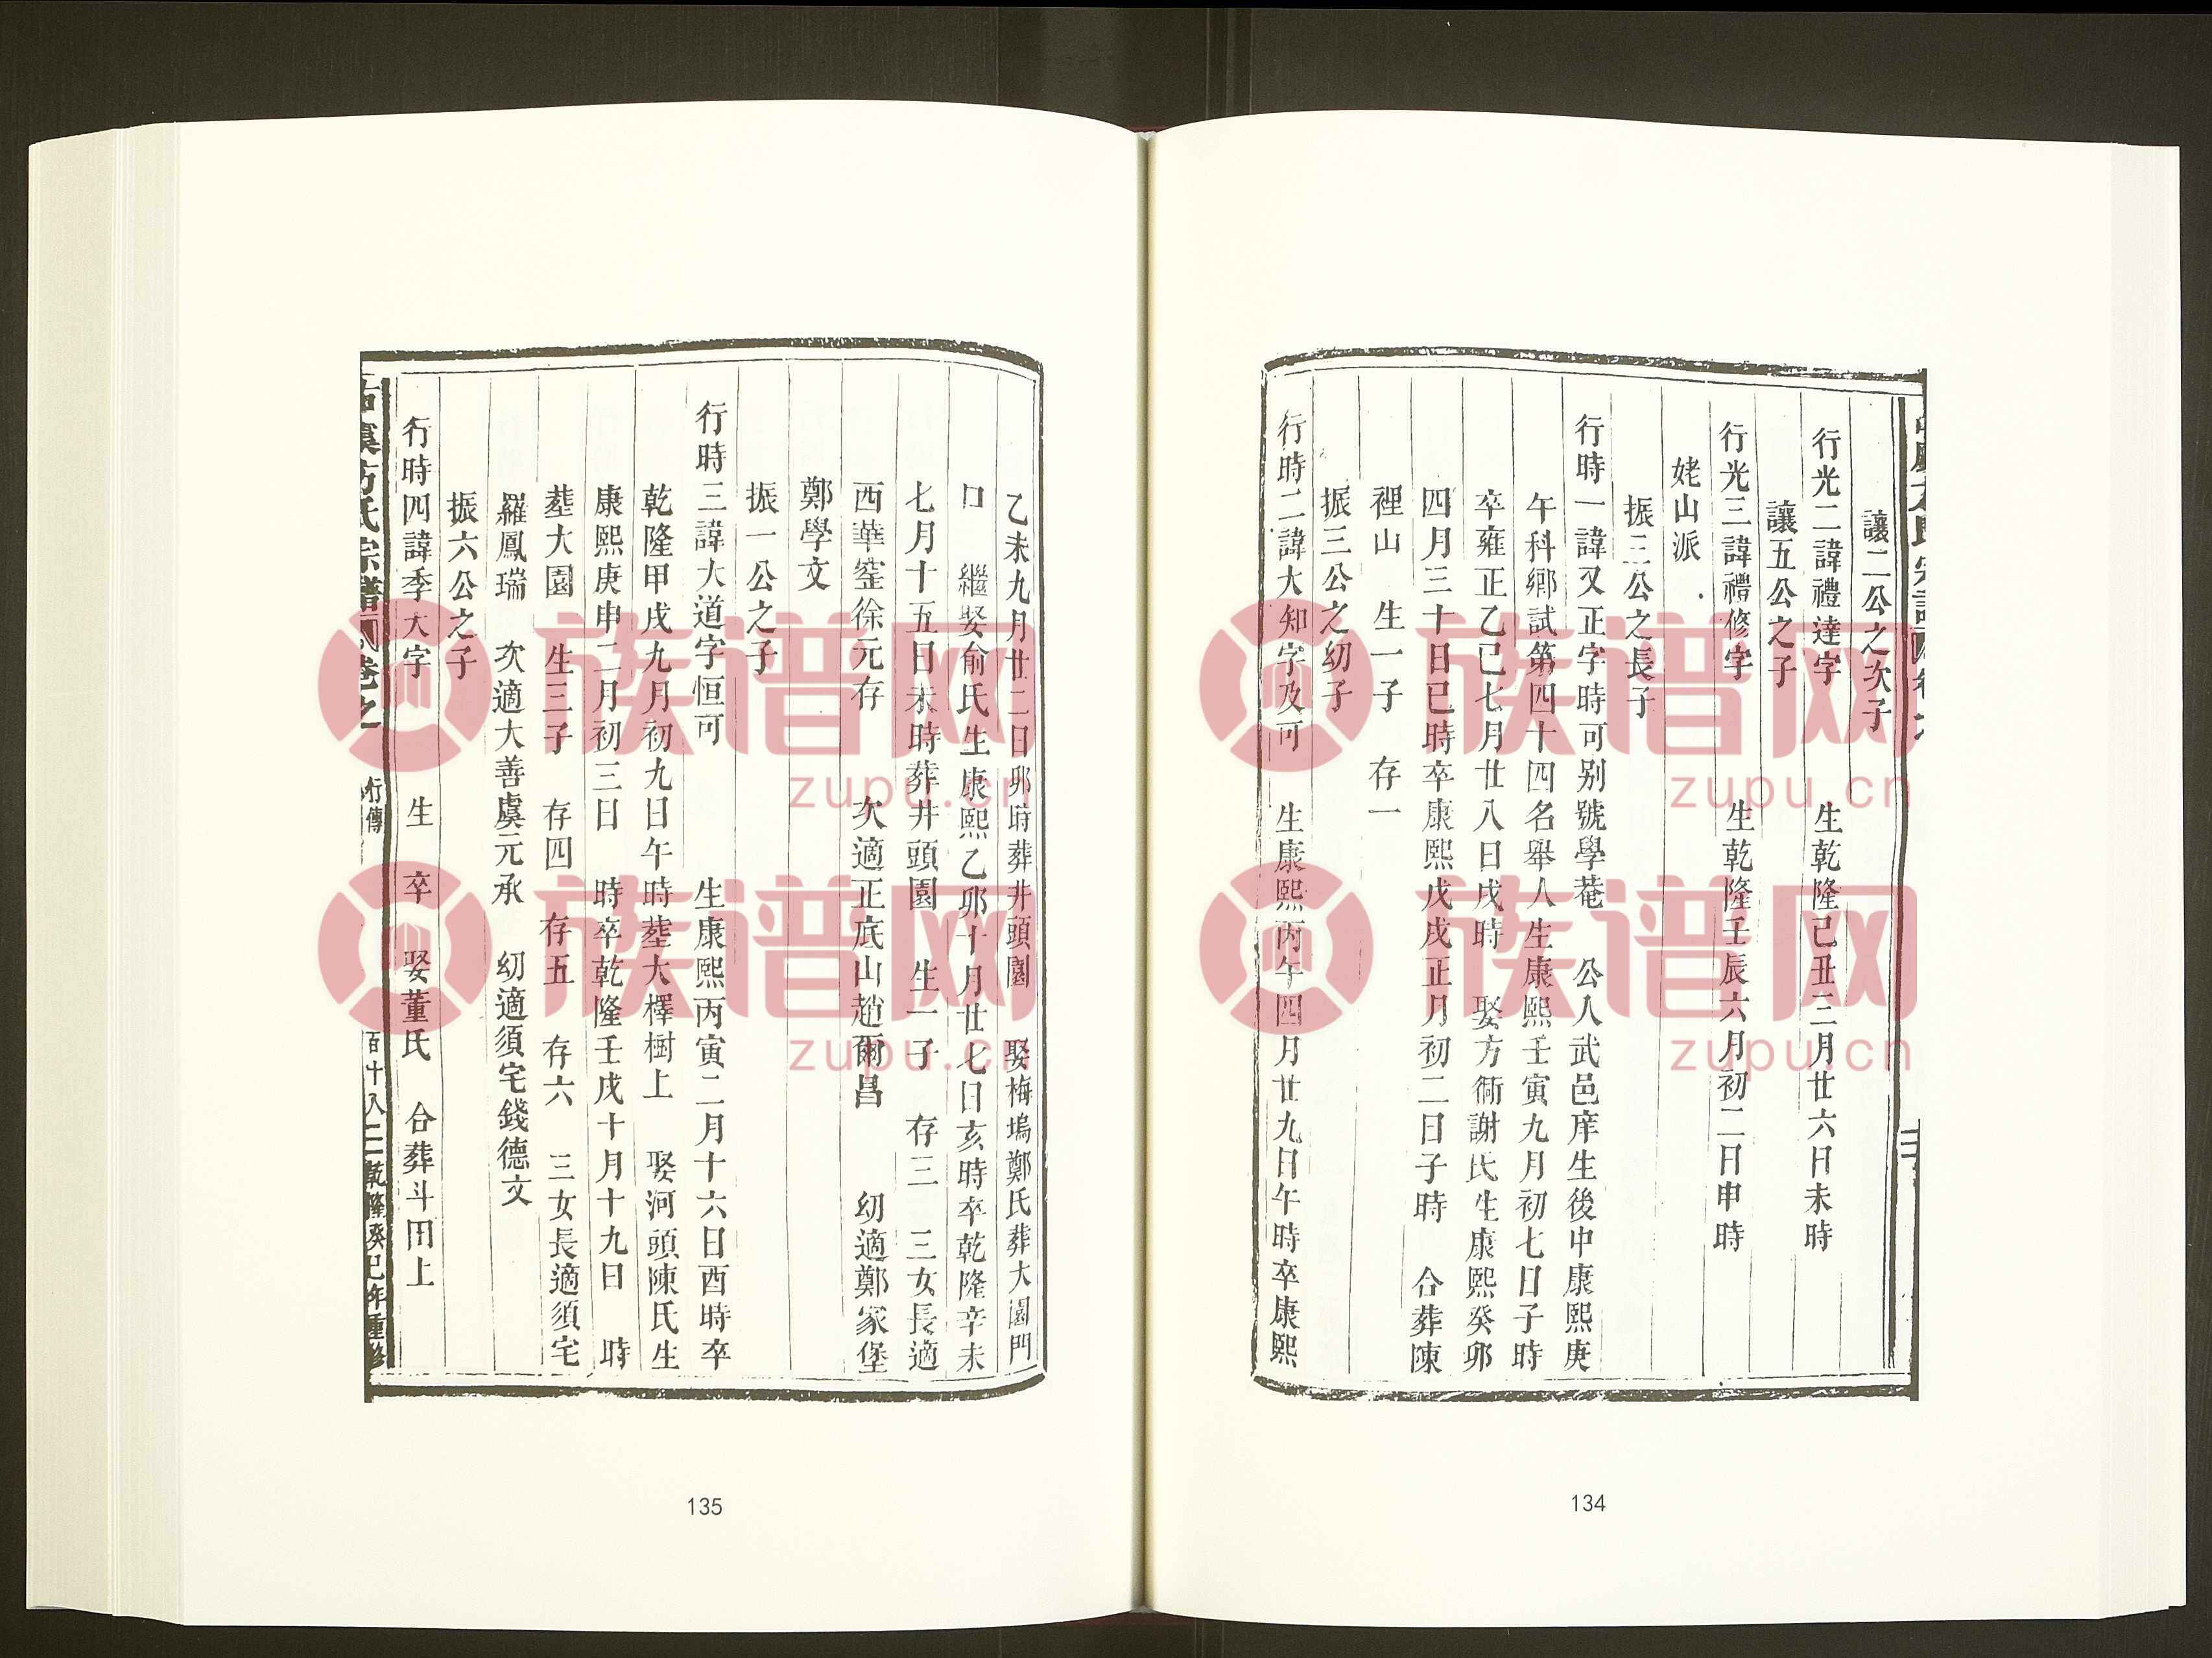 讓二公之次子
行光二諱禮達字　生乾隆己丑三月廿六日未時
讓五公之子
行光三諱禮修字　生乾隆壬辰六月初二日申時
姥山派
振三公之長子
行時一諱又正字時可别號學菴　公人武邑庠生後中康熙庚
午科鄉試第四十四名舉人生康熙壬寅九月初七日子時
卒雍正乙巳七月廿八日戌時　娶方衕謝氏生康熙癸卯
四月三十日巳時卒康熙戊戌正月初二日子時　合葬陳
裡山　生一子　存一
振三公之幼子
行時二諱大知字及可　生康熙丙午四月廿九日午時卒康熙
134
乙未九月廿二日卯時葬井頭園　娶梅塢鄭氏葬大園門
口　繼娶俞氏生康熙乙卯十月廿七日亥時卒乾隆辛未
七月十五日未時葬井頭園　生一子　存三　三女長適
西華窐徐元存　次適正底山趙爾昌　幼適鄭家堡
鄭學文
振一公之子
行時三諱大道字恒可　生康熙丙寅二月十六日酉時卒
乾隆甲戌九月初九日午時塟大檡樹上　娶河頭陳氏生
康熙庚申二月初三日　時卒乾隆壬戌十月十九日　時
塟大園　生三子　存四　存五　存六　三女長適須宅
羅鳳瑞　次適大善虞元承　幼適須宅錢德文
振六公之子
行時四諱季大字　生　卒　娶董氏　合葬斗田上
氏宗譜 卷之 行傳 百十八 乾隆癸巳年重修
135
族谱网
zupu.cn
族谱网
zupu.cn
族谱网
zupu.cn
族谱网
zupu.cn